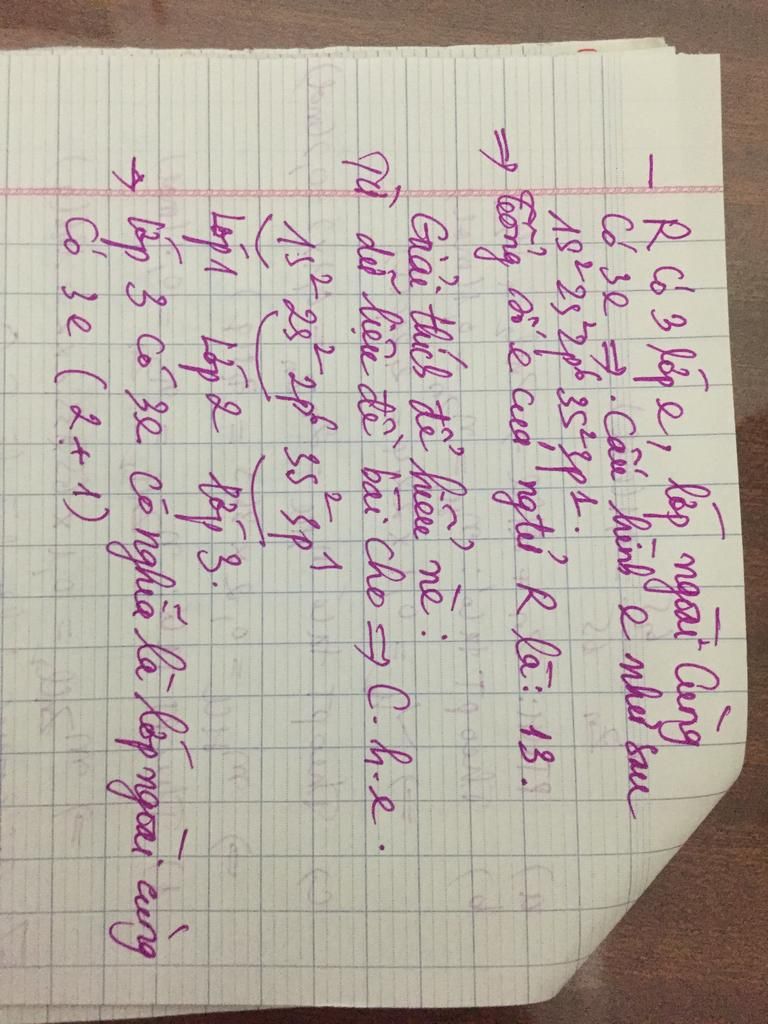 - R có 3 lớp e, lớp ngoài cùng
có 3e ⇒ Cấu hình e như sau
1s² 2s² 2p⁶ 3s² 3p1.
⇒ Tổng số e của ngtử R là: 13.
Giải thích dễ hiểu nè:
Từ dữ liệu đề bài cho ⇒ C.h.e.
1s² 2s² 2p⁶ 3s² 3p¹
Lớp1 Lớp2 lớp3.
→ Lớp 3 có 3e có nghĩa là lớp ngoài cùng
có 3e (2+1)